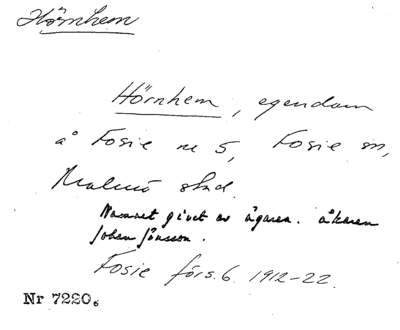 Hörnhem
Hörnhem, egendom
å Fosie nr 5, Fosie sn,
Malmö stad.
Namnet givet av ägaren. åkaren
Johan Jönsson.
Fosie förs. 6. 1912-22.
Nr 7220.